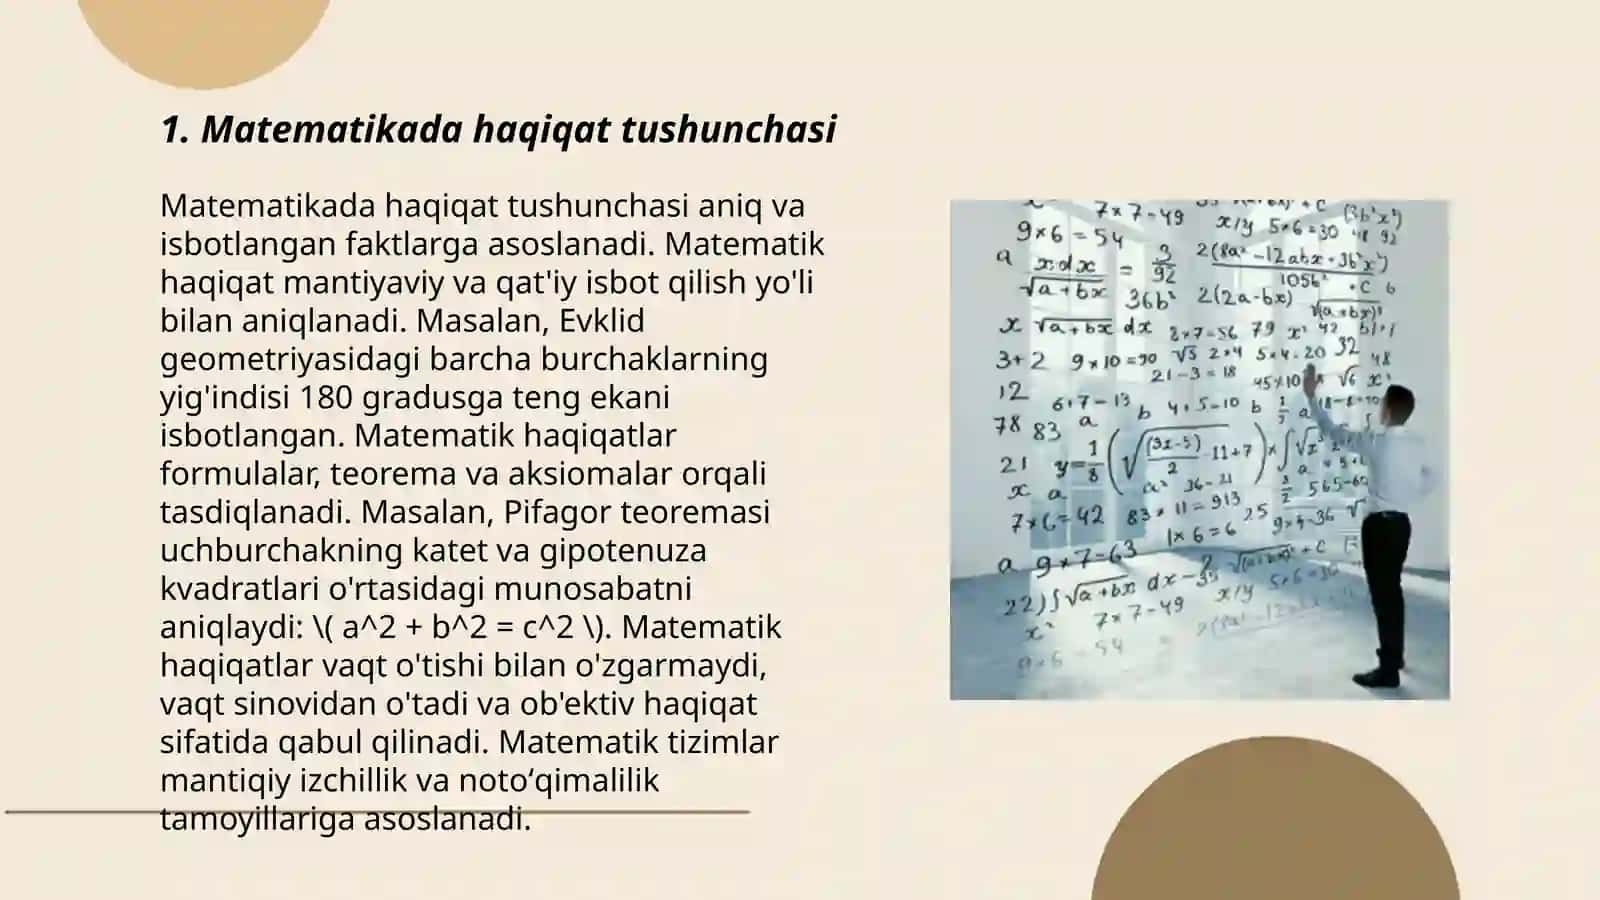 1. Matematikada haqiqat tushunchasi
Matematikada haqiqat tushunchasi aniq va
isbotlangan faktlarga asoslanadi. Matematik
haqiqat mantiyaviy va qat'iy isbot qilish yo'li
bilan aniqlanadi. Masalan, Evklid
geometriyasidagi barcha burchaklarning
yig'indisi 180 gradusga teng ekani
isbotlangan. Matematik haqiqatlar
formulalar, teorema va aksiomalar orqali
tasdiqlanadi. Masalan, Pifagor teoremasi
uchburchakning katet va gipotenuza
kvadratlari o'rtasidagi munosabatni
aniqlaydi: \( a^2 + b^2 = c^2 \). Matematik
haqiqatlar vaqt o'tishi bilan o'zgarmaydi,
vaqt sinovidan o'tadi va ob'ektiv haqiqat
sifatida qabul qilinadi. Matematik tizimlar
mantiqiy izchillik va noto‘qimalilik
tamoyillariga asoslanadi.
7×7-49
9×6=54
x/y 5×6=30
2(2a-bx)
36b²
x √a+bx dx
8×7=56 79 x² 42
3+2 9×10=90 √3 2×4 5×4-20 32
21-3=18
12
6+7-13 b 4+5-10 b
78 83 a
21
x a
7×6=42 83×11=913 25
1×6=6
a 9×7-63
22)∫√a+bx dx-35
7×7-49
x²